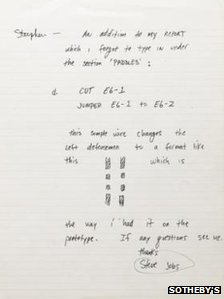 Stephen — An addition to my REPORT
which I forgot to type in under
the section 'PADDLES' :
d. CUT E6-1
JUMPER E6-1 to E6-2
this simple wire changes the
left defencemen to a format like
this which is
the way i had it on the
prototype. If any questions see me.
thanks
Steve Jobs
SOTHEBY'S